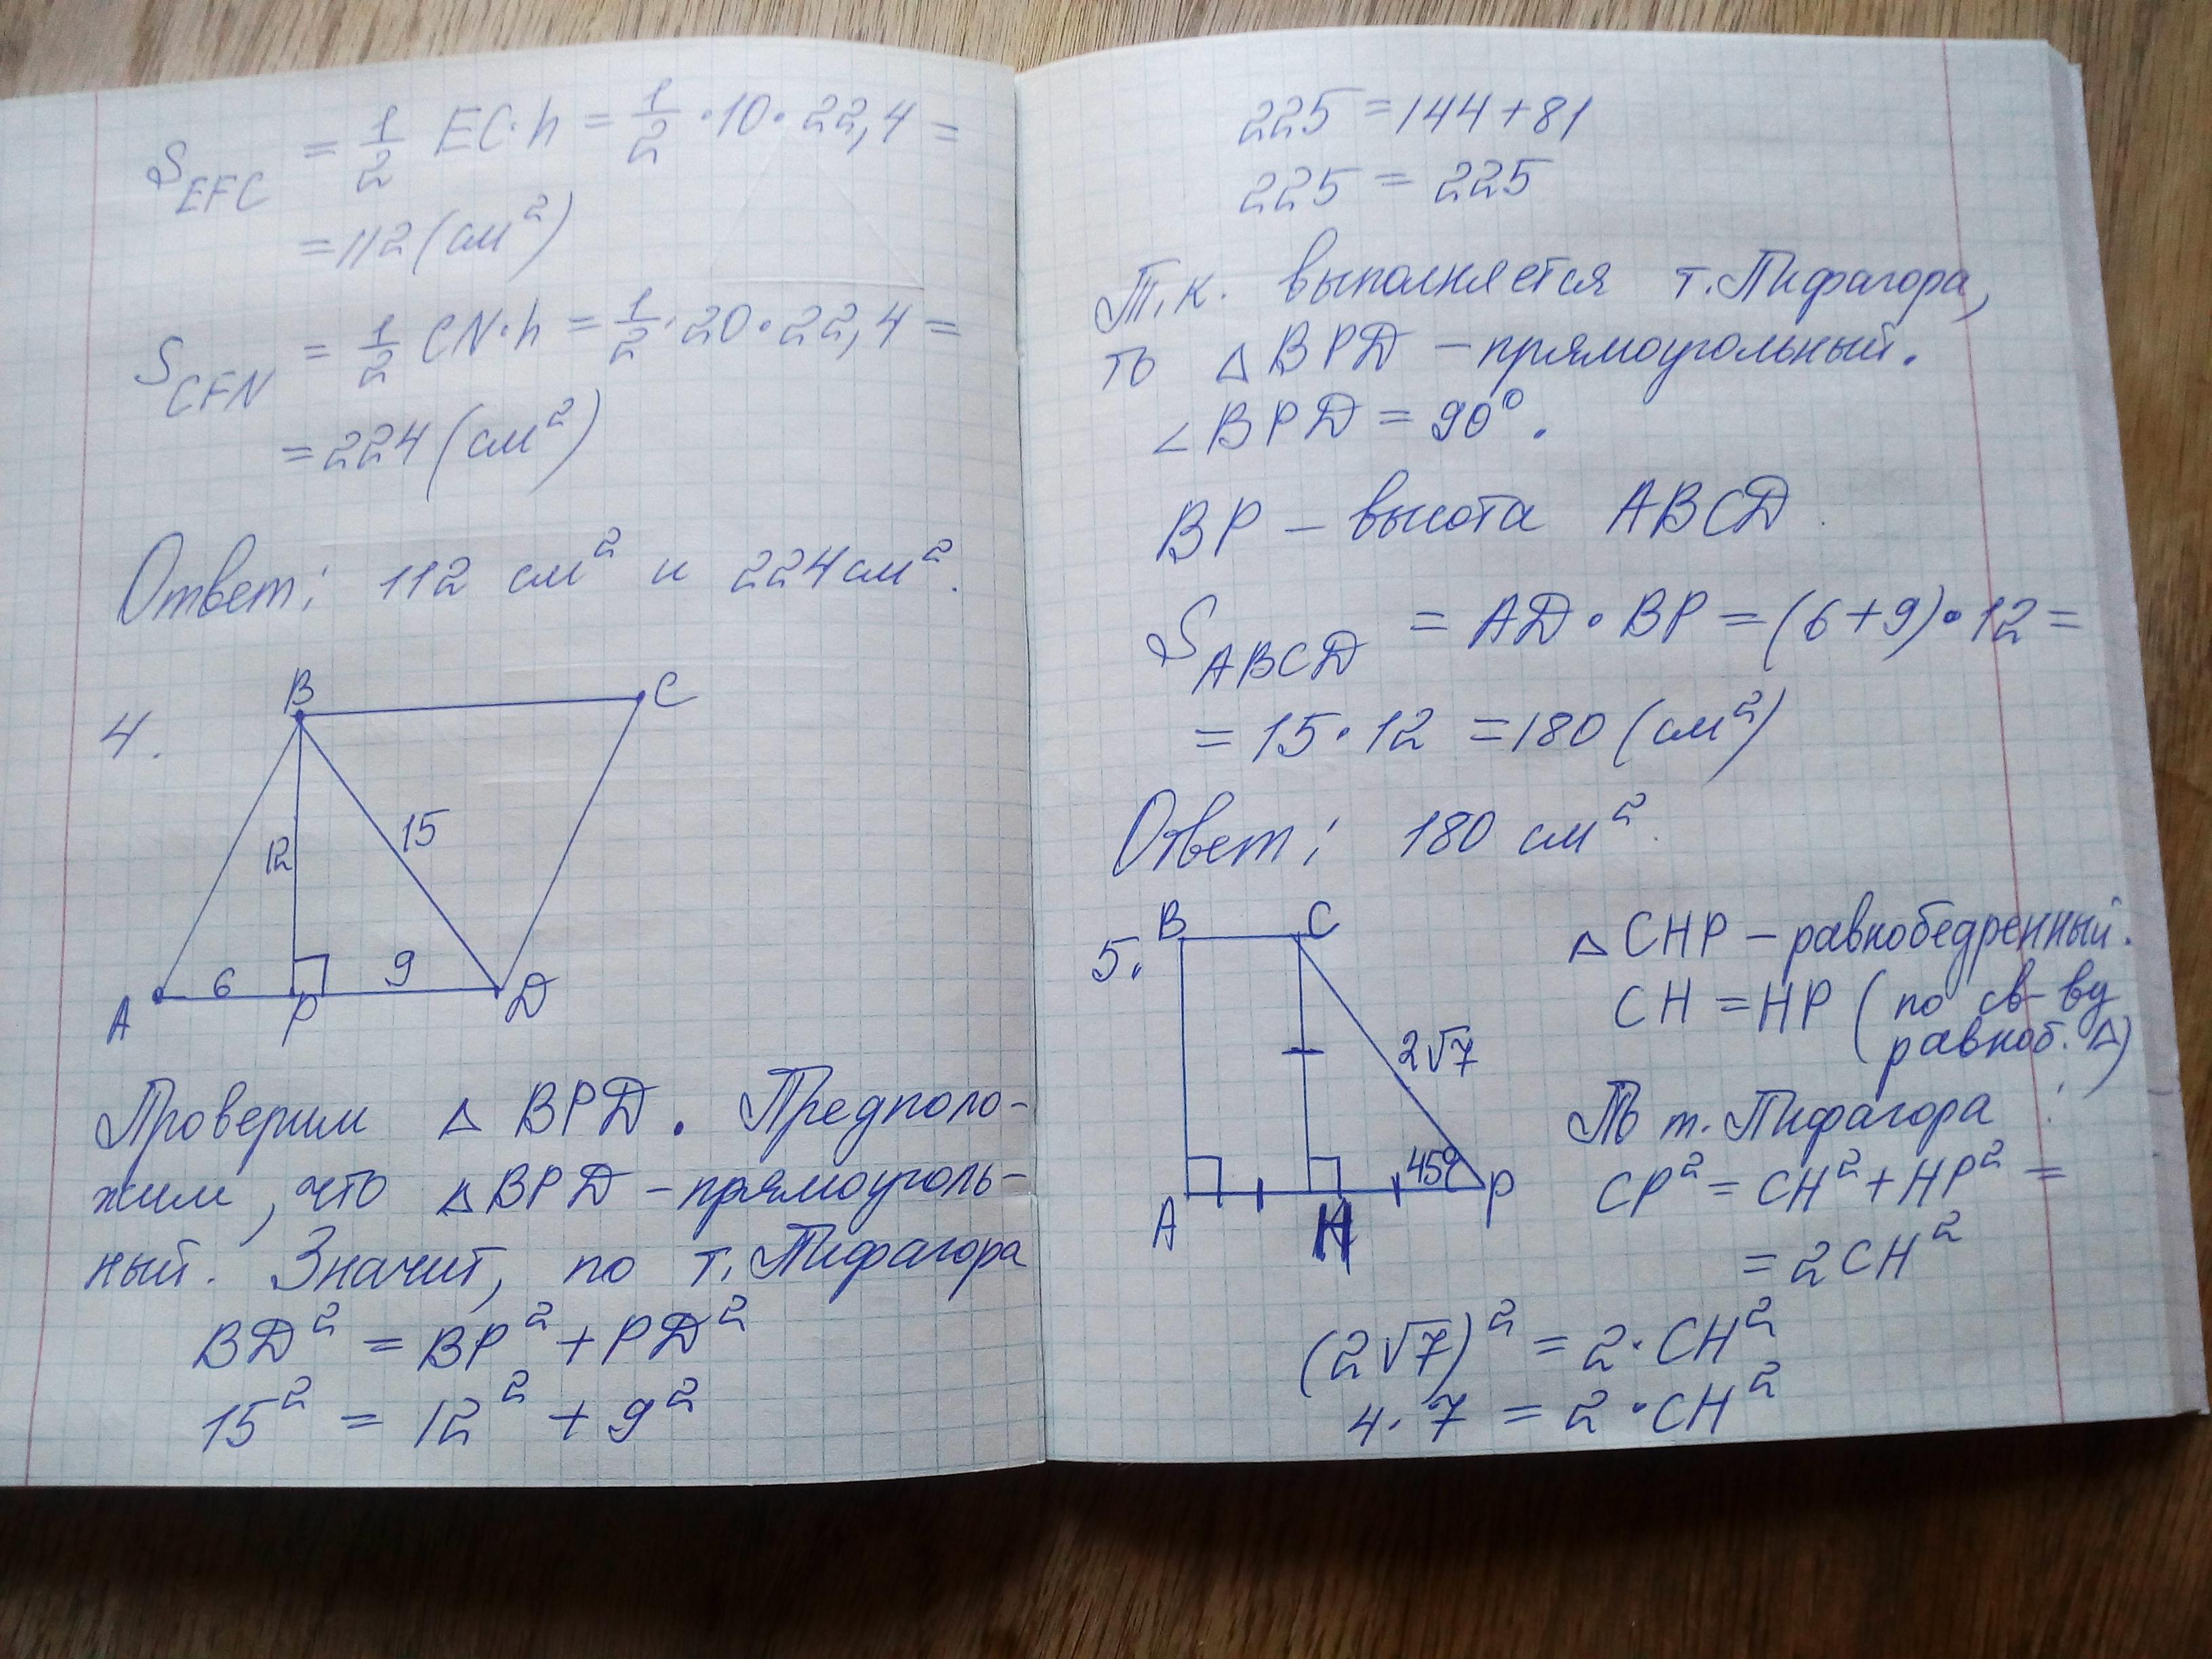 S_EFC = 1/2 EC · h = 1/2 · 10 · 22,4 =
= 112 (см²)
S_CFN = 1/2 CN · h = 1/2 · 20 · 22,4 =
= 224 (см²)
Ответ: 112 см² и 224 см².
4.
B
C
12
15
6
9
A
P
D
Проверим △ BPD. Предполо-
жим, что △ BPD – прямоуголь-
ный. Значит, по т. Пифагора
BD² = BP² + PD²
15² = 12² + 9²
225 = 144 + 81
225 = 225
Т.к. выполняется т. Пифагора,
то △ BPD – прямоугольный.
∠ BPD = 90°.
BP – высота ABCD
S_ABCD = AD · BP = (6+9) · 12 =
= 15 · 12 = 180 (см²)
Ответ: 180 см².
5.
B
C
2√7
45°
A
H
P
△ CHP – равнобедренный.
CH = HP (по св-ву
равноб. △)
По т. Пифагора:
CP² = CH² + HP² =
= 2CH²
(2√7)² = 2 · CH²
4 · 7 = 2 · CH²